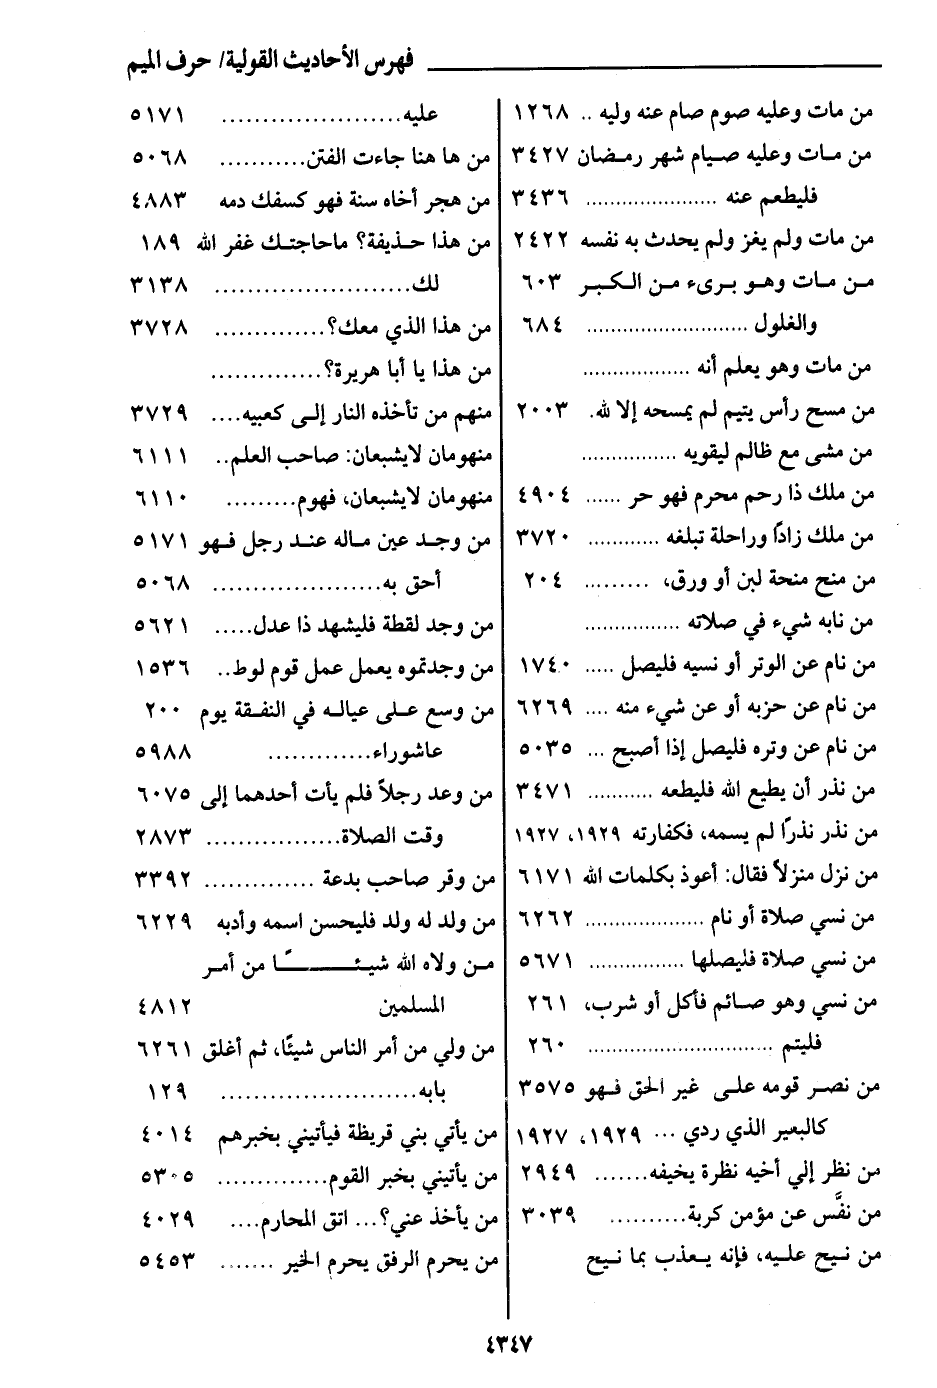 فهرس الأحاديث القولية/ حرف الميم
من مات وعليه صوم صام عنه وليه .. ١٢٦٨
من مات وعليه صيام شهر رمضان ٣٤٢٧
فليطعم عنه ..................... ٣٤٣٦
من مات ولم يغز ولم يحدث به نفسه ٢٤٢٢
من مات وهو بريء من الكبر ٦٠٣
والغلول .......................... ٦٨٤
من مات وهو يعلم أنه .................
من مسح رأس يتيم لم يمسحه إلا لله. ٢٠٠٣
من مشى مع ظالم ليقويه ...............
من ملك ذا رحم محرم فهو حر ...... ٤٩٠٤
من ملك زادًا وراحلة تبلغه ............ ٣٧٢٠
من منح منحة لبن أو ورق، ......... ٢٠٤
من نابه شيء في صلاته ...............
من نام عن الوتر أو نسيه فليصل ..... ١٧٤٠
من نام عن حزبه أو عن شيء منه .... ٦٢٦٩
من نام عن وتره فليصل إذا أصبح ... ٥٠٣٥
من نذر أن يطيع الله فليطعه ........... ٣٤٧١
من نذر نذرًا لم يسمه، فكفارته ١٩٢٩، ١٩٢٧
من نزل منزلاً فقال: أعوذ بكلمات الله ٦١٧١
من نسي صلاة أو نام ................... ٦٢٦٢
من نسي صلاة فليصلها ................ ٥٦٧١
من نسي وهو صائم فأكل أو شرب، ٢٦١
فليتم .............................. ٢٦٠
من نصر قومه على غير الحق فهو ٣٥٧٥
كالبعير الذي ردي ... ١٩٢٩، ١٩٢٧
من نظر إلي أخيه نظرة يخيفه....... ٢٩٤٩
من نفَّس عن مؤمن كربة.......... ٣٠٣٩
من نيح عليه، فإنه يعذب بما نيح
عليه...................... ٥١٧١
من ها هنا جاءت الفتن........... ٥٠٦٨
من هجر أخاه سنة فهو كسفك دمه ٤٨٨٣
من هذا حذيفة؟ ماحاجتك غفر الله ١٨٩
لك........................ ٣١٣٨
من هذا الذي معك؟.............. ٣٧٢٨
من هذا يا أبا هريرة؟..............
منهم من تأخذه النار إلى كعبيه.... ٣٧٢٩
منهومان لايشبعان: صاحب العلم.. ٦١١١
منهومان لايشبعان، فهوم......... ٦١١٠
من وجد عين ماله عند رجل فهو ٥١٧١
أحق به..................... ٥٠٦٨
من وجد لقطة فليشهد ذا عدل..... ٥٦٢١
من وجدتموه يعمل عمل قوم لوط.. ١٥٣٦
من وسع على عياله في النفقة يوم ٢٠٠
عاشوراء............. ٥٩٨٨
من وعد رجلاً فلم يأت أحدهما إلى ٦٠٧٥
وقت الصلاة................. ٢٨٧٣
من وقر صاحب بدعة .............. ٣٣٩٢
من ولد له ولد فليحسن اسمه وأدبه ٦٢٢٩
من ولاه الله شيئًا من أمر
المسلمين ٤٨١٢
من ولي من أمر الناس شيئًا، ثم أغلق ٦٢٦١
بابه........................ ١٢٩
من يأتي بني قريظة فيأتيني بخبرهم ٤٠١٤
من يأتيني بخبر القوم.............. ٥٣٠٥
من يأخذ عني؟... اتق المحارم.... ٤٠٢٩
من يحرم الرفق يحرم الخير ....... ٥٤٥٣
٤٣٤٧